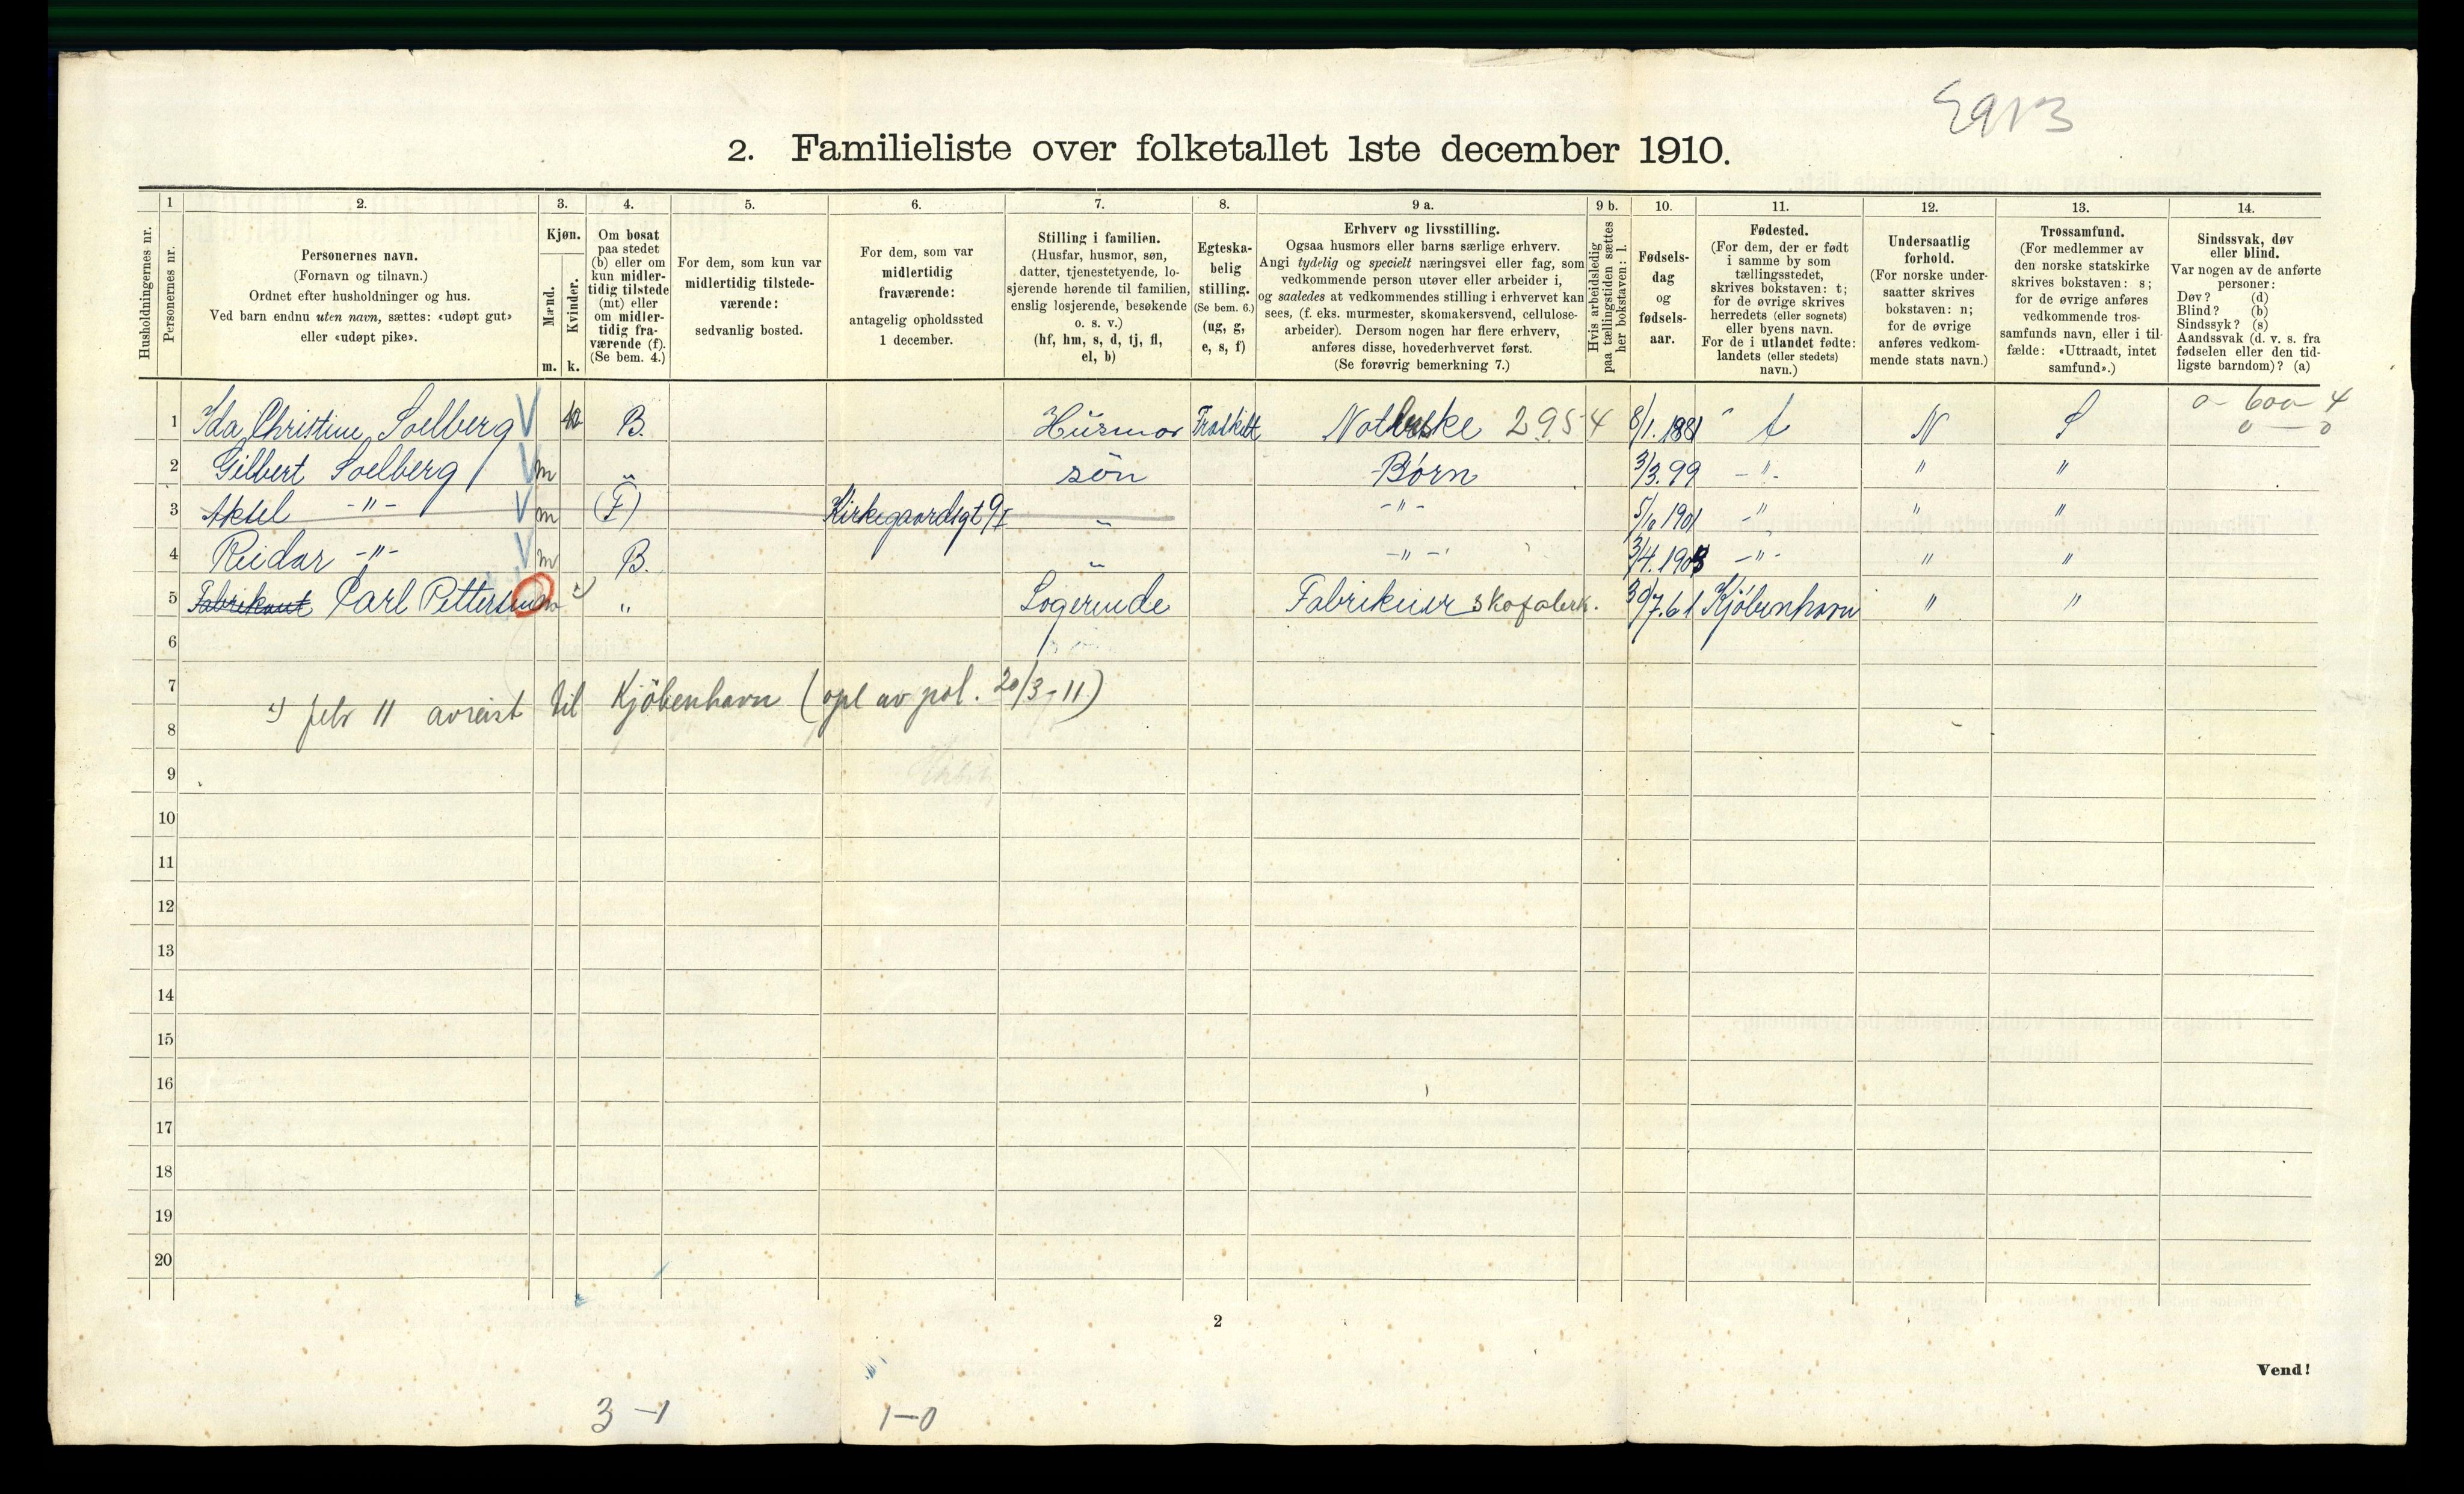 2. Familieliste over folketallet 1ste december 1910.
Husholdningernes nr.
1
Personernes nr.
2.
Personernes navn.
(Fornavn og tilnavn.)
Ordnet efter husholdninger og hus.
Ved barn endnu uten navn, sættes: «udøpt gut»
eller «udøpt pike».
3.
Kjøn.
Mænd.
Kvinder.
m. k.
4.
Om bosat
paa stedet
(b) eller om
kun midler-
tidig tilstede
(mt) eller
om midler-
tidig fra-
værende (f).
(Se bem. 4.)
5.
For dem, som kun var
midlertidig tilstede-
værende:
sedvanlig bosted.
6.
For dem, som var
midlertidig
fraværende:
antagelig opholdssted
1 december.
7.
Stilling i familien.
(Husfar, husmor, søn,
datter, tjenestetyende, lo-
sjerende hørende til familien,
enslig losjerende, besøkende
o. s. v.)
(hf, hm, s, d, tj, fl,
el, b)
8.
Egteska-
belig
stilling.
(Se bem. 6.)
(ug, g,
e, s, f)
9 a.
Erhverv og livsstilling.
Ogsaa husmors eller barns særlige erhverv.
Angi tydelig og specielt næringsvei eller fag, som
vedkommende person utøver eller arbeider i,
og saaledes at vedkommendes stilling i erhvervet kan
sees, (f. eks. murmester, skomakersvend, cellulose-
arbeider). Dersom nogen har flere erhverv,
anføres disse, hovederhvervet først.
(Se forøvrig bemerkning 7.)
9 b.
Hvis arbeidsledig
paa tællingstiden sættes
her bokstaven: l.
10.
Fødsels-
dag
og
fødsels-
aar.
11.
Fødested.
(For dem, der er født
i samme by som
tællingsstedet,
skrives bokstaven: t;
for de øvrige skrives
herredets (eller sognets)
eller byens navn.
For de i utlandet fødte:
landets (eller stedets)
navn.)
12.
Undersaatlig
forhold.
(For norske under-
saatter skrives
bokstaven: n;
for de øvrige
anføres vedkom-
mende stats navn.)
13.
Trossamfund.
(For medlemmer av
den norske statskirke
skrives bokstaven: s;
for de øvrige anføres
vedkommende tros-
samfunds navn, eller i til-
fælde: «Uttraadt, intet
samfund».)
14.
Sindssvak, døv
eller blind.
Var nogen av de anførte
personer:
Døv? (d)
Blind? (b)
Sindssyk? (s)
Aandssvak (d. v. s. fra
fødselen eller den tid-
ligste barndom)? (a)
0 - 600 - 4
0 - 0
1 Ida Christine Soelberg B. Husmor Fraskilt 2954 8/1. 1881 t N S
2 Gilbert Soelberg m " søn Børn 3/3. 99 -"- " "
3 Aksel -"- m (F) Kirkegaardsgt 9I " -"- 5/10 1901 -"- " "
4 Reidar -"- m B. " -"- 3/4. 1903 -"- " "
5 Fabrikant Carl Pettersen m " Logerende Fabrikeier skofabrk. 30/7. 61 Kjöbenhavn " "
6
7
febr 11 avreist til Kjöbenhavn (opl av pol. 20/3-11)
8
9
10
11
12
13
14
15
16
17
18
19
20
2
Vend!
3 -1 1-0